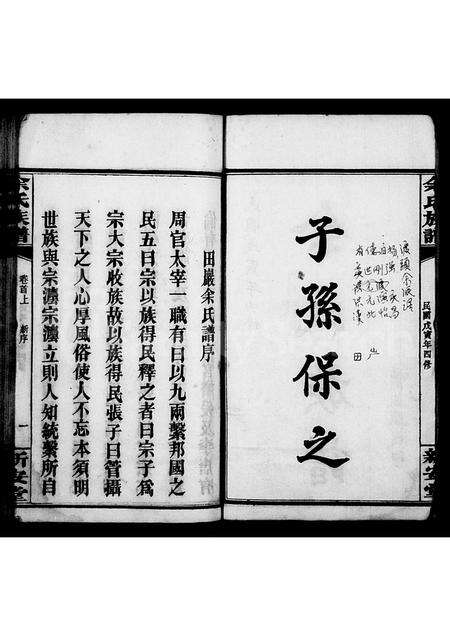 余氏族譜
民國戊寅年四修
新安堂
子孫保之
田巖余氏譜序
周官太宰一職有曰以九兩繫邦國之
民五曰宗以族得民釋之者曰宗子爲
宗大宗收族故以族得民張子曰管攝
天下之人心厚風俗使人不忘本須明
世族與宗灋宗灋立則人知統繫所自
余氏族譜
卷首上
新序
一
新安堂